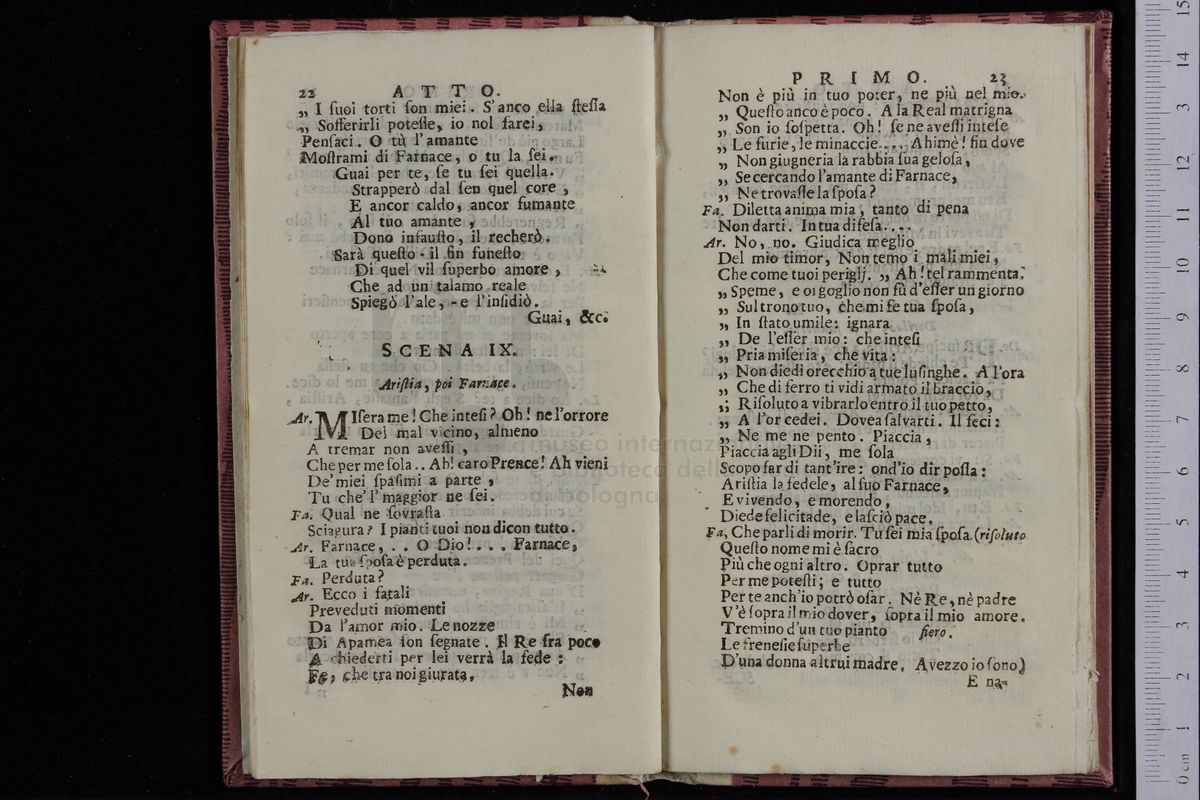 22 ATTO.
„ I ſuoi torti ſon miei. S'anco ella ſteſſa
„ Sofferirli poteſſe, io nol farei,
Penſaci. O tù l'amante
Moſtrami di Farnace, o tu la ſei.
Guai per te, ſe tu ſei quella.
Strapperò dal ſen quel core,
E ancor caldo, ancor fumante
Al tuo amante,
Dono infauſto, il recherò.
Sarà queſto il fin funeſto
Di quel vil ſuperbo amore,
Che ad un talamo reale
Spiegò l'ale, e l'inſidiò.
Guai, &c.
SCENA IX.
Ariſtia, poi Farnace.
Ar. MIſera me! Che inteſi? Oh! ne l'orrore
Del mal vicino, almeno
A tremar non aveſſi,
Che per me ſola.. Ah! caro Prence! Ah vieni
De' miei ſpaſimi a parte,
Tu che'l maggior ne ſei.
Fa. Qual ne ſovraſta
Sciagura? I pianti tuoi non dicon tutto.
Ar. Farnace, .. O Dio!... Farnace,
La tua ſpoſa è perduta.
Fa. Perduta?
Ar. Ecco i fatali
Preveduti momenti
Da l'amor mio. Le nozze
Di Apamea ſon ſegnate. Il Re fra poco
A chiederti per lei verrà la fede:
Fe, che tra noi giurata,
Non
PRIMO. 23
Non è più in tuo poter, ne più nel mio.
„ Queſto anco è poco. A la Real matrigna
„ Son io ſoſpetta. Oh! ſe ne aveſſi inteſe
„ Le furie, le minaccie.... Ahimè! fin dove
„ Non giugneria la rabbia ſua geloſa,
„ Se cercando l'amante di Farnace,
„ Ne trovaſſe la ſpoſa?
Fa. Diletta anima mia, tanto di pena
Non darti. In tua difeſa....
Ar. No, no. Giudica meglio
Del mio timor, Non temo i mali miei,
Che come tuoi periglj. „ Ah! tel rammenta.
„ Speme, e orgoglio non fù d'eſſer un giorno
„ Sul trono tuo, che mi fe tua ſpoſa,
„ In ſtato umile: ignara
„ De l'eſſer mio: che inteſi
„ Pria miſeria, che vita:
„ Non diedi orecchio a tue luſinghe. A l'ora
„ Che di ferro ti vidi armato il braccio,
„ Riſoluto a vibrarlo entro il tuo petto,
„ A l'or cedei. Dovea ſalvarti. Il feci:
„ Ne me ne pento. Piaccia,
Piaccia agli Dii, me ſola
Scopo far di tant'ire: ond'io dir poſſa:
Ariſtia la fedele, al ſuo Farnace,
E vivendo, e morendo,
Diede felicitade, e laſciò pace.
Fa, Che parli di morir. Tu ſei mia ſpoſa. (riſoluto
Queſto nome mi è ſacro
Più che ogni altro. Oprar tutto
Per me poteſti; e tutto
Per te anch'io potrò oſar. Nè Re, nè padre
V'è ſopra il mio dover, ſopra il mio amore.
Tremino d'un tuo pianto fiero.
Le freneſie ſuperbe
D'una donna altrui madre. Avezzo io ſono
E na-